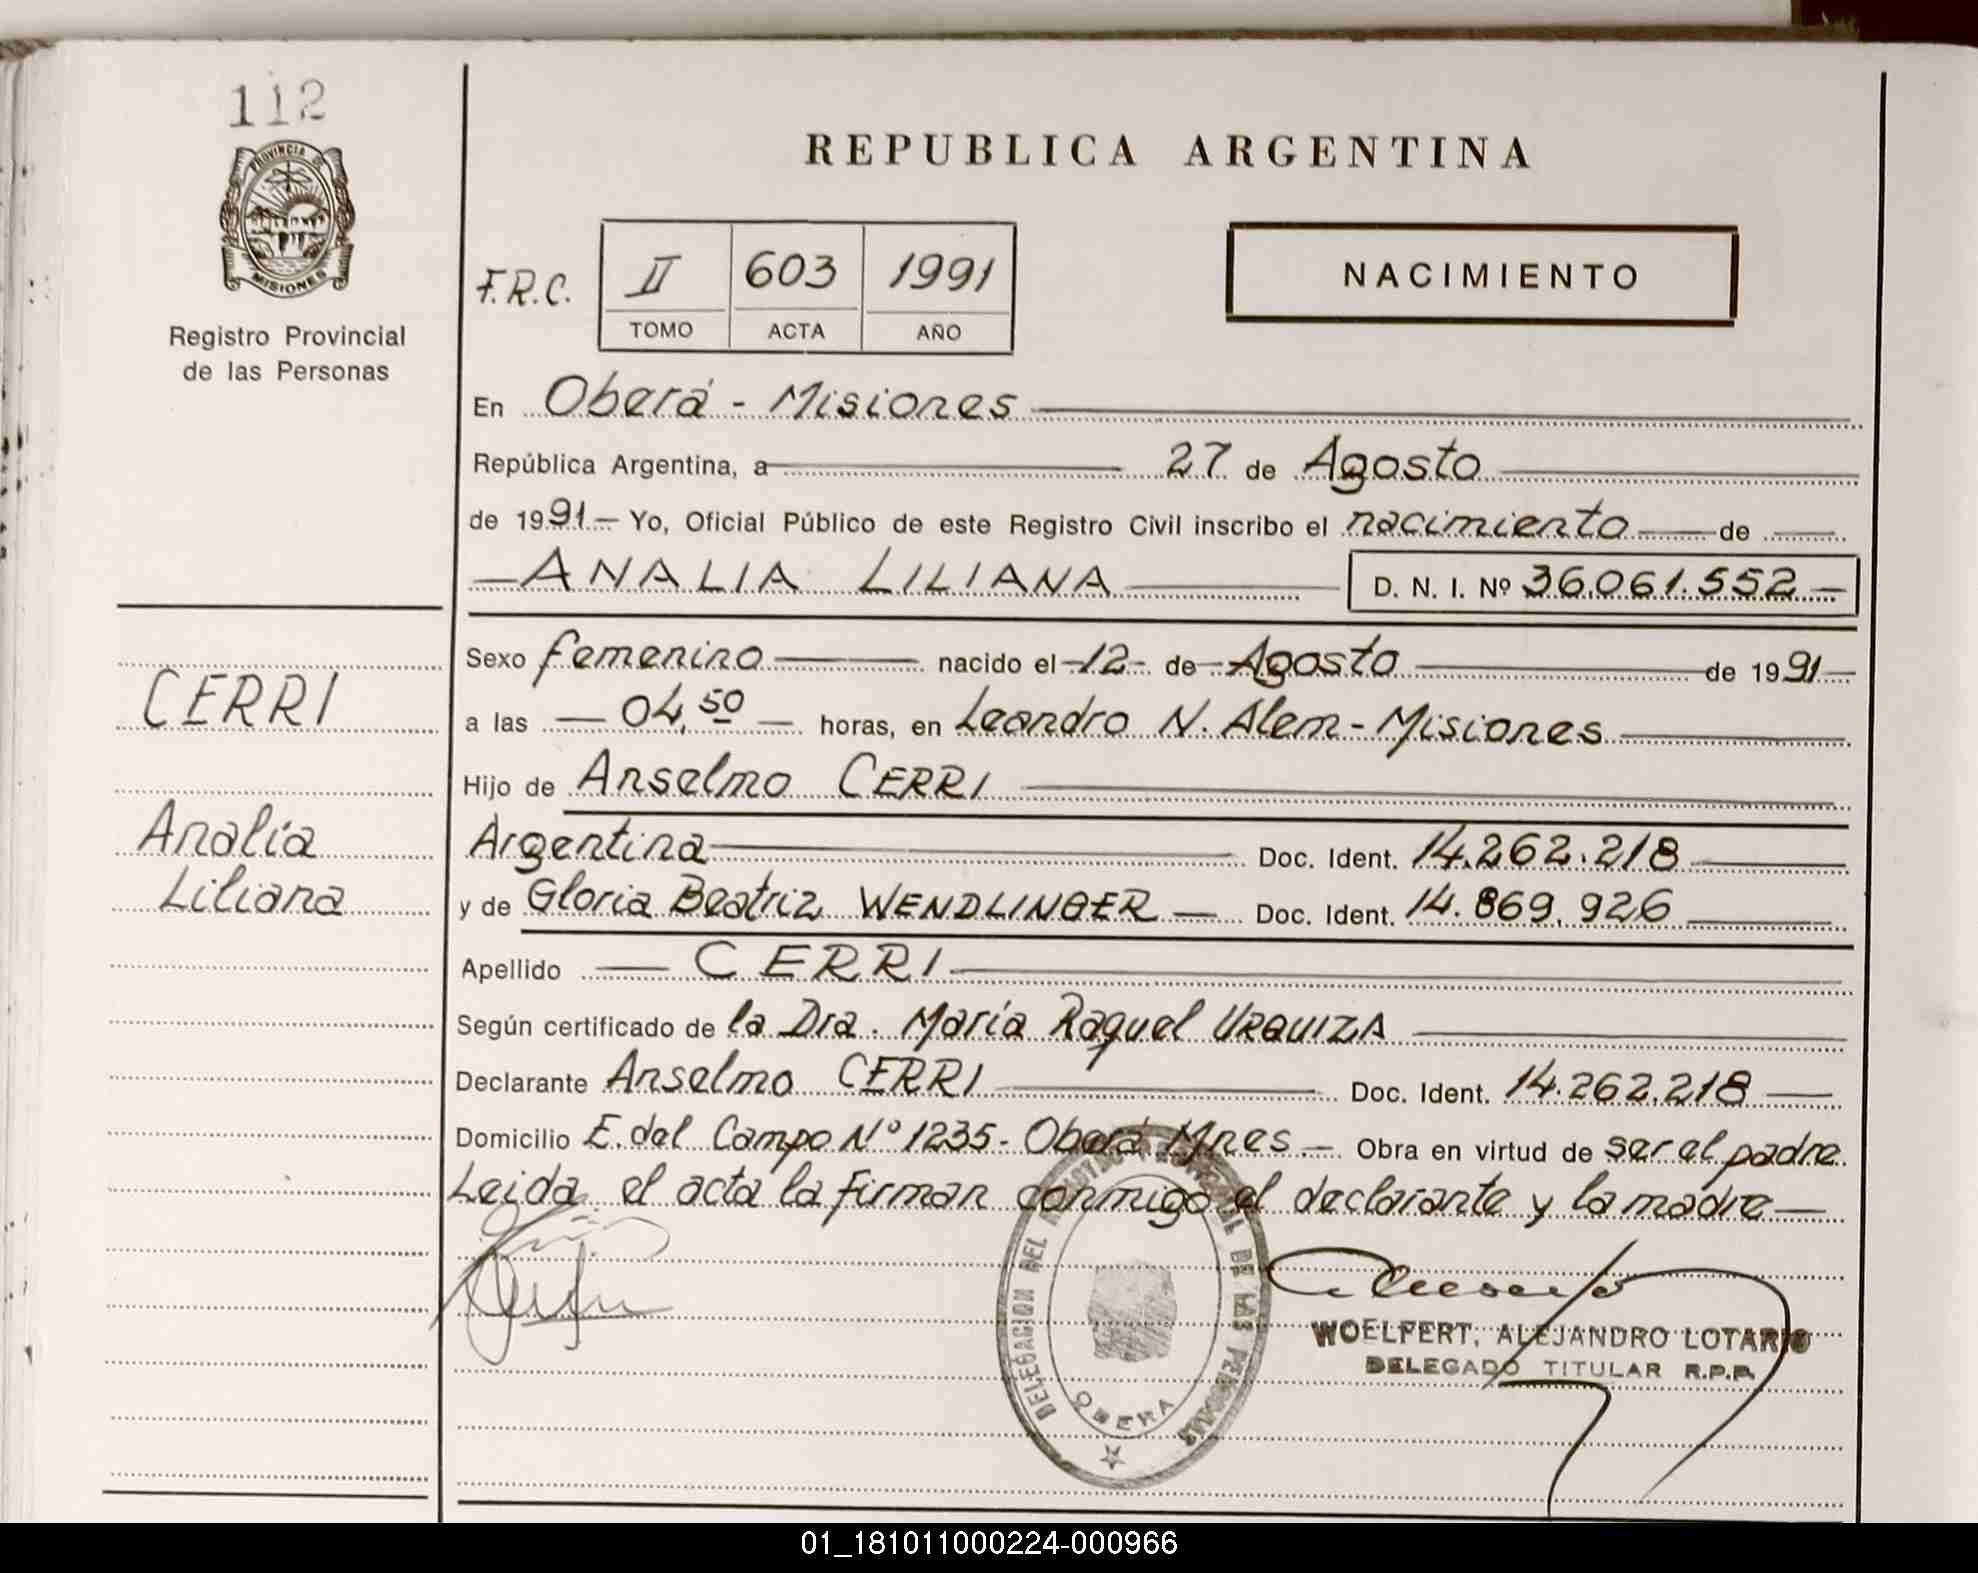 112
PROVINCIA DE
MISIONES
Registro Provincial
de las Personas
CERRI
Analía
Liliana
REPUBLICA ARGENTINA
F.R.C. II 603 1991
TOMO ACTA AÑO
NACIMIENTO
En Oberá - Misiones
República Argentina, a 27 de Agosto
de 1991 - Yo, Oficial Público de este Registro Civil inscribo el nacimiento de
ANALIA LILIANA D. N. I. Nº 36.061.552
Sexo femenino nacido el 12 de Agosto de 1991
a las 04,50 horas, en Leandro N. Alem - Misiones
Hijo de Anselmo CERRI
Argentina Doc. Ident. 14.262.218
y de Gloria Beatriz WENDLINGER Doc. Ident. 14.869.926
Apellido CERRI
Según certificado de la Dra. María Raquel URQUIZA
Declarante Anselmo CERRI Doc. Ident. 14.262.218
Domicilio E. del Campo Nº 1235 - Oberá Mnes. - Obra en virtud de ser el padre
Leida el acta la firman conmigo el declarante y la madre
DELEGACION DEL REGISTRO PROVINCIAL DE LAS PERSONAS
OBERA
WOELFERT, ALEJANDRO LOTARIO
DELEGADO TITULAR R.P.P.
01_181011000224-000966